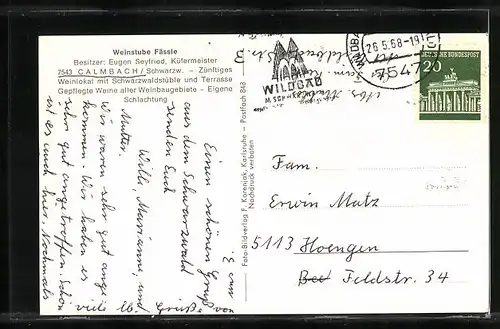 Weinstube Fässle
Besitzer: Eugen Seyfried, Küfermeister
7543 CALMBACH/Schwarzw. - Zünftiges
Weinlokal mit Schwarzwaldstüble und Terrasse
Gepflegte Weine aller Weinbaugebiete - Eigene
Schlachtung
Einen schönen Gruß
aus dem Schwarzwald
senden Euch
Willi, Marianne, und
Mutter.
Wir waren sehr gut ange
kommen. Wir haben es
sehr gut angetroffen. Schön
ist es auch hier. Nochmals
viele
Grüße von
Foto-Bildverlag P. Korenjak, Karlsruhe - Postfach 848
Nachdruck verboten
WILDBAD
IM SCHWARZWALD
26.5.68-19
7547
DEUTSCHE BUNDESPOST
20
Fam.
Erwin Matz
5113 Hoengen
Feldstr. 34